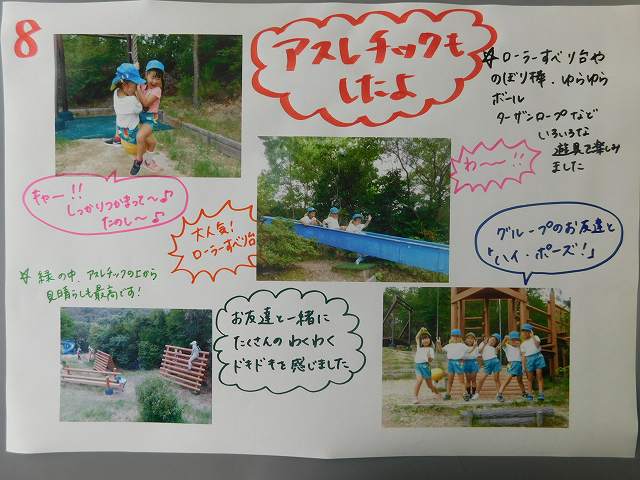 8
アスレチックも
したよ
☆ローラーすべり台や
のぼり棒、ゆらゆら
ボール
ターザンロープなど
いろいろな
遊具で楽しみ
ました
キャー!!
しっかりつかまって〜♪
たのし〜♪
大人気!
ローラーすべり台
わ〜〜!!
グループのお友達と
「ハイ・ポーズ!」
☆緑の中、アスレチックの上から
見晴らしも最高です!
お友達と一緒に
たくさんのわくわく
ドキドキを感じました